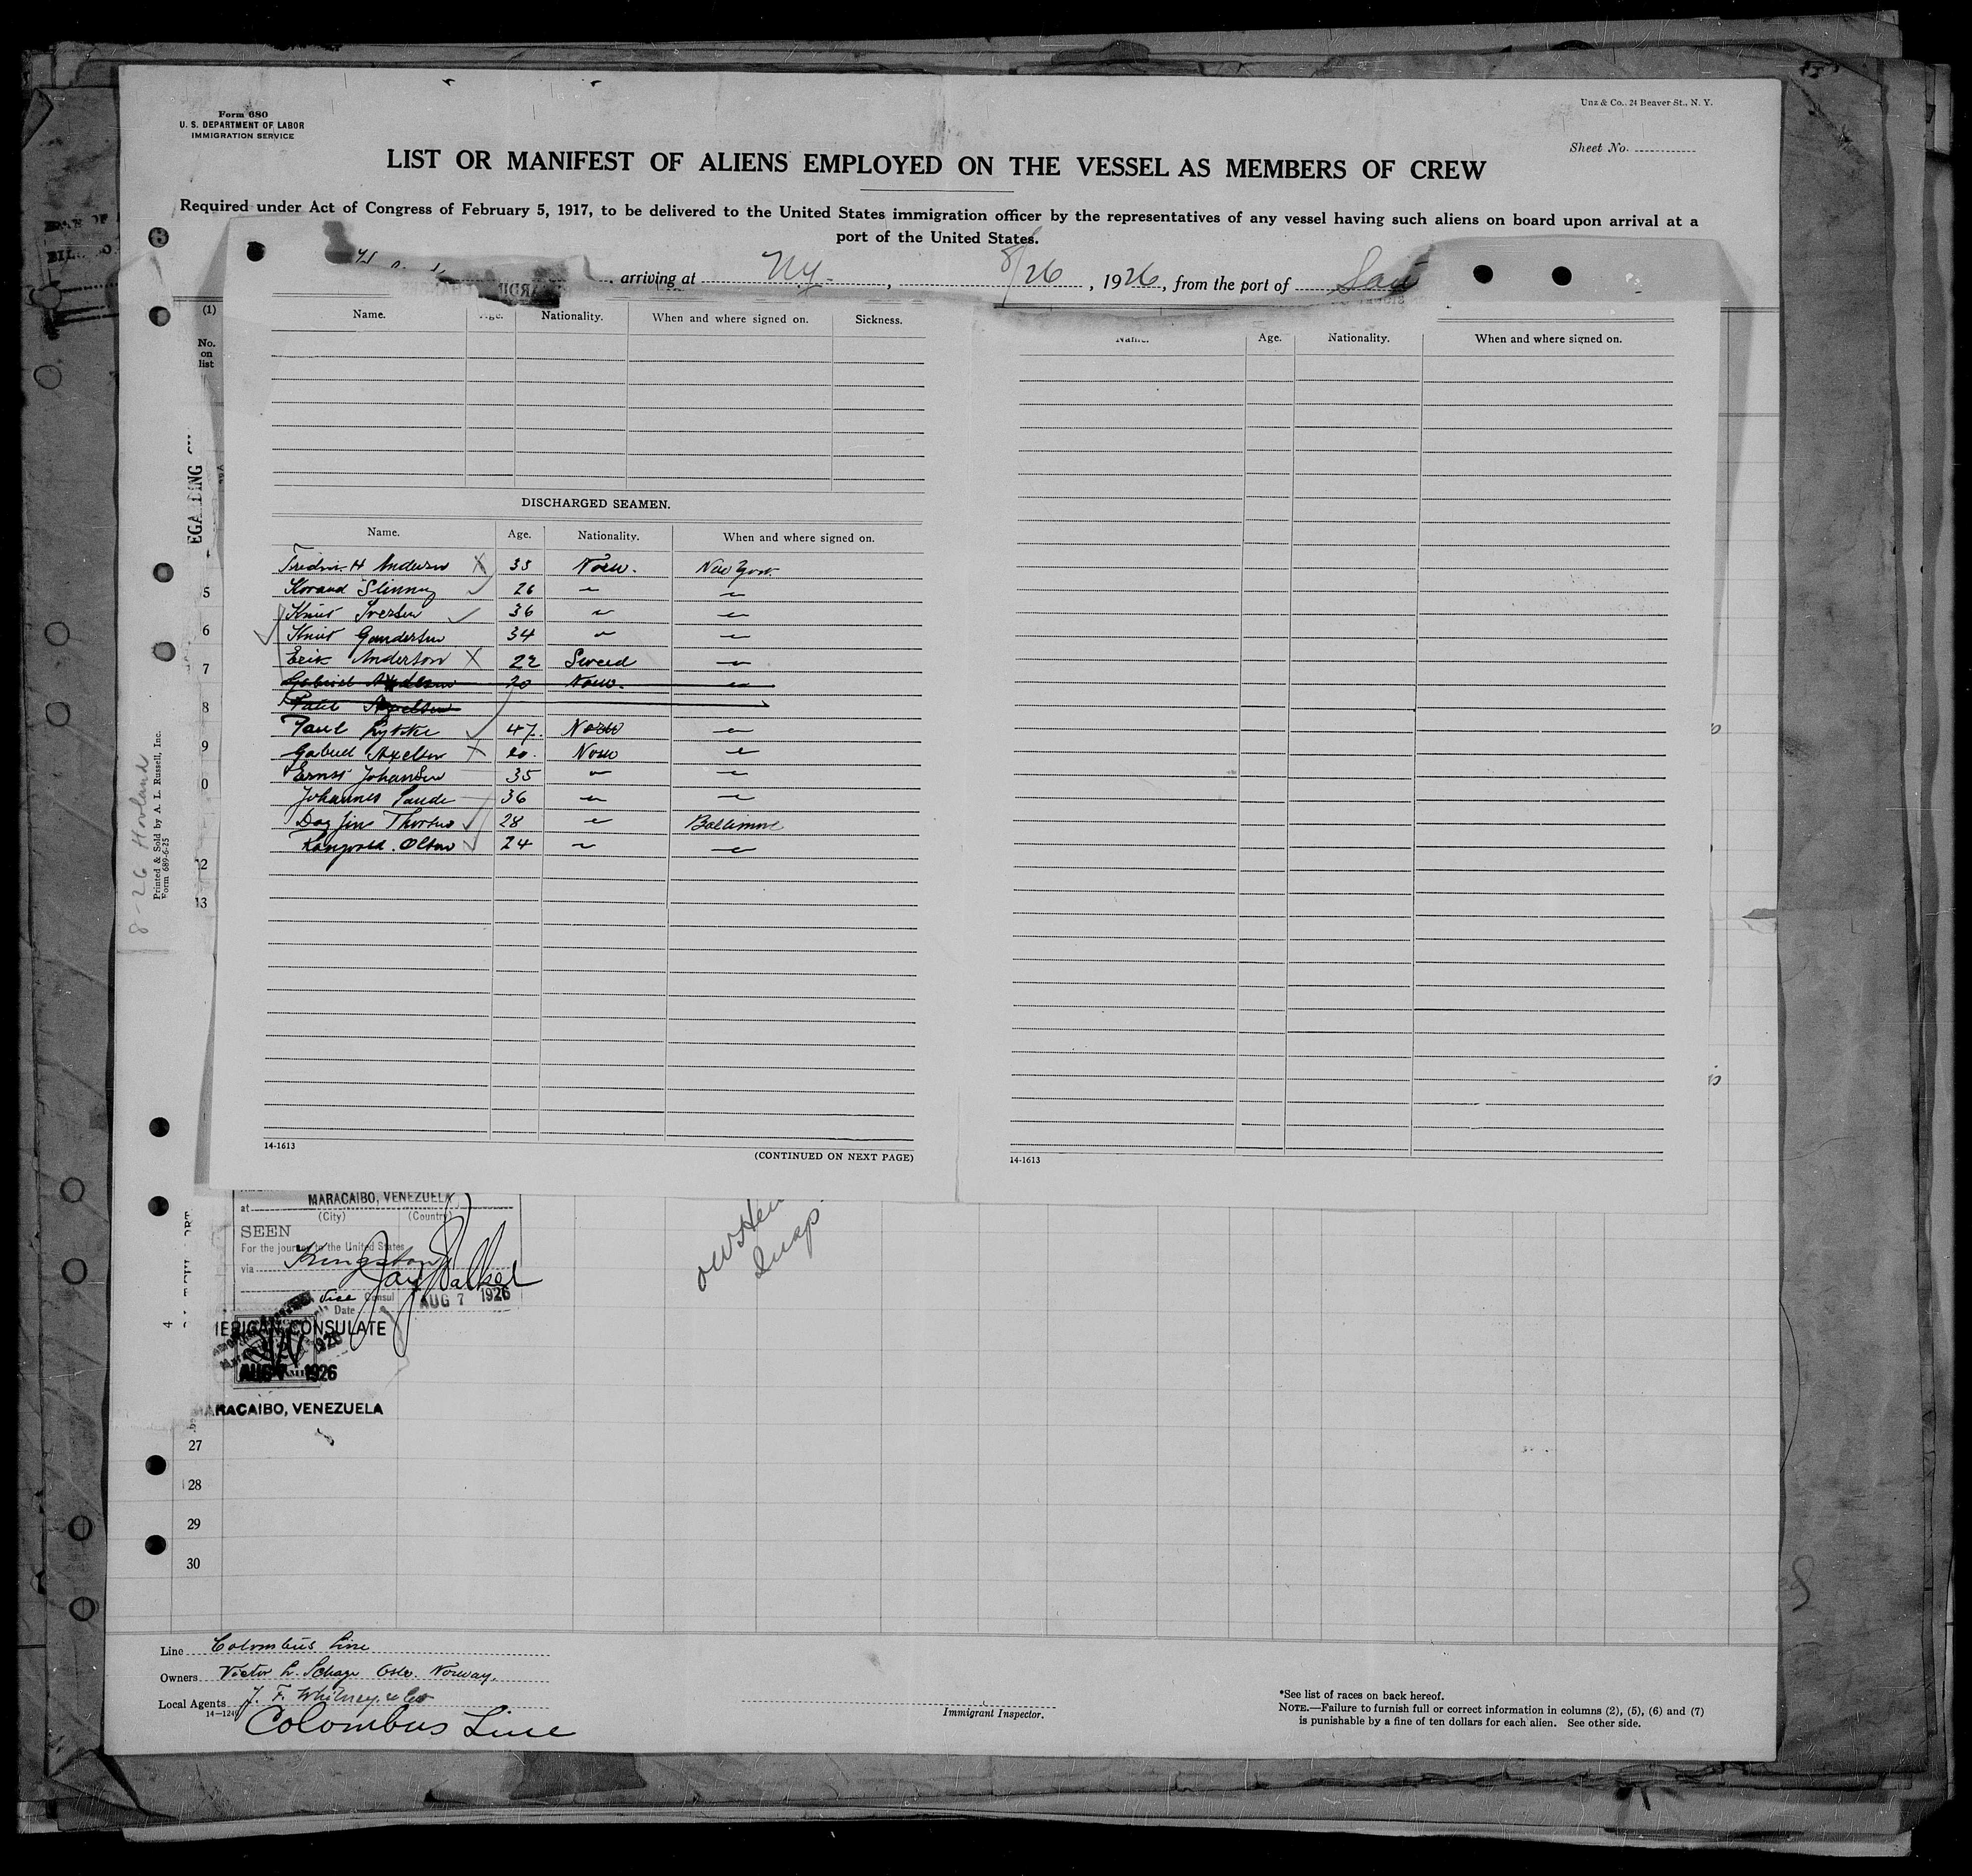 Form 680
U. S. DEPARTMENT OF LABOR
IMMIGRATION SERVICE
Unz & Co., 24 Beaver St., N. Y.
Sheet No.
LIST OR MANIFEST OF ALIENS EMPLOYED ON THE VESSEL AS MEMBERS OF CREW
Required under Act of Congress of February 5, 1917, to be delivered to the United States immigration officer by the representatives of any vessel having such aliens on board upon arrival at a
port of the United States.
, arriving at NY. , 8/26 , 1926, from the port of
(1)
No.
on
list
Name. Age. Nationality. When and where signed on. Sickness.
Name. Age. Nationality. When and where signed on.
DISCHARGED SEAMEN.
Name. Age. Nationality. When and where signed on.
H Andersen X 35 Norw. New York
26 " "
Knut Iversen 36 " "
Knut Gundersen 34 " "
Erik Anderson X 22 Sweed "
Gabriel 20 Norw. "
Paul Axelsen
Paul Lykke 47. Norw "
Gabriel Axelsen X 20. Norw "
Ernst Johansen 35 " "
Johannes 36 " "
Dagfinn 28 " Baltimore
Olsen 24 " "
5
6
7
8
9
0
12
13
8-26 Hovland
Printed & Sold by A. L. Russell, Inc.
Form 689-6-25
14-1613
(CONTINUED ON NEXT PAGE)
14-1613
at MARACAIBO, VENEZUELA
(City) (Country)
SEEN
For the journey to the United States
via Kingston
Vice Consul
Date AUG 7 1926
AMERICAN CONSULATE
AUG 7 1926
MARACAIBO, VENEZUELA
27
28
29
30
Line Colombus Line
Owners Victor L. Oslo. Norway.
Local Agents J. F. Whitney & Co
14-1240
Colombus Line
Immigrant Inspector.
*See list of races on back hereof.
NOTE.—Failure to furnish full or correct information in columns (2), (5), (6) and (7)
is punishable by a fine of ten dollars for each alien. See other side.